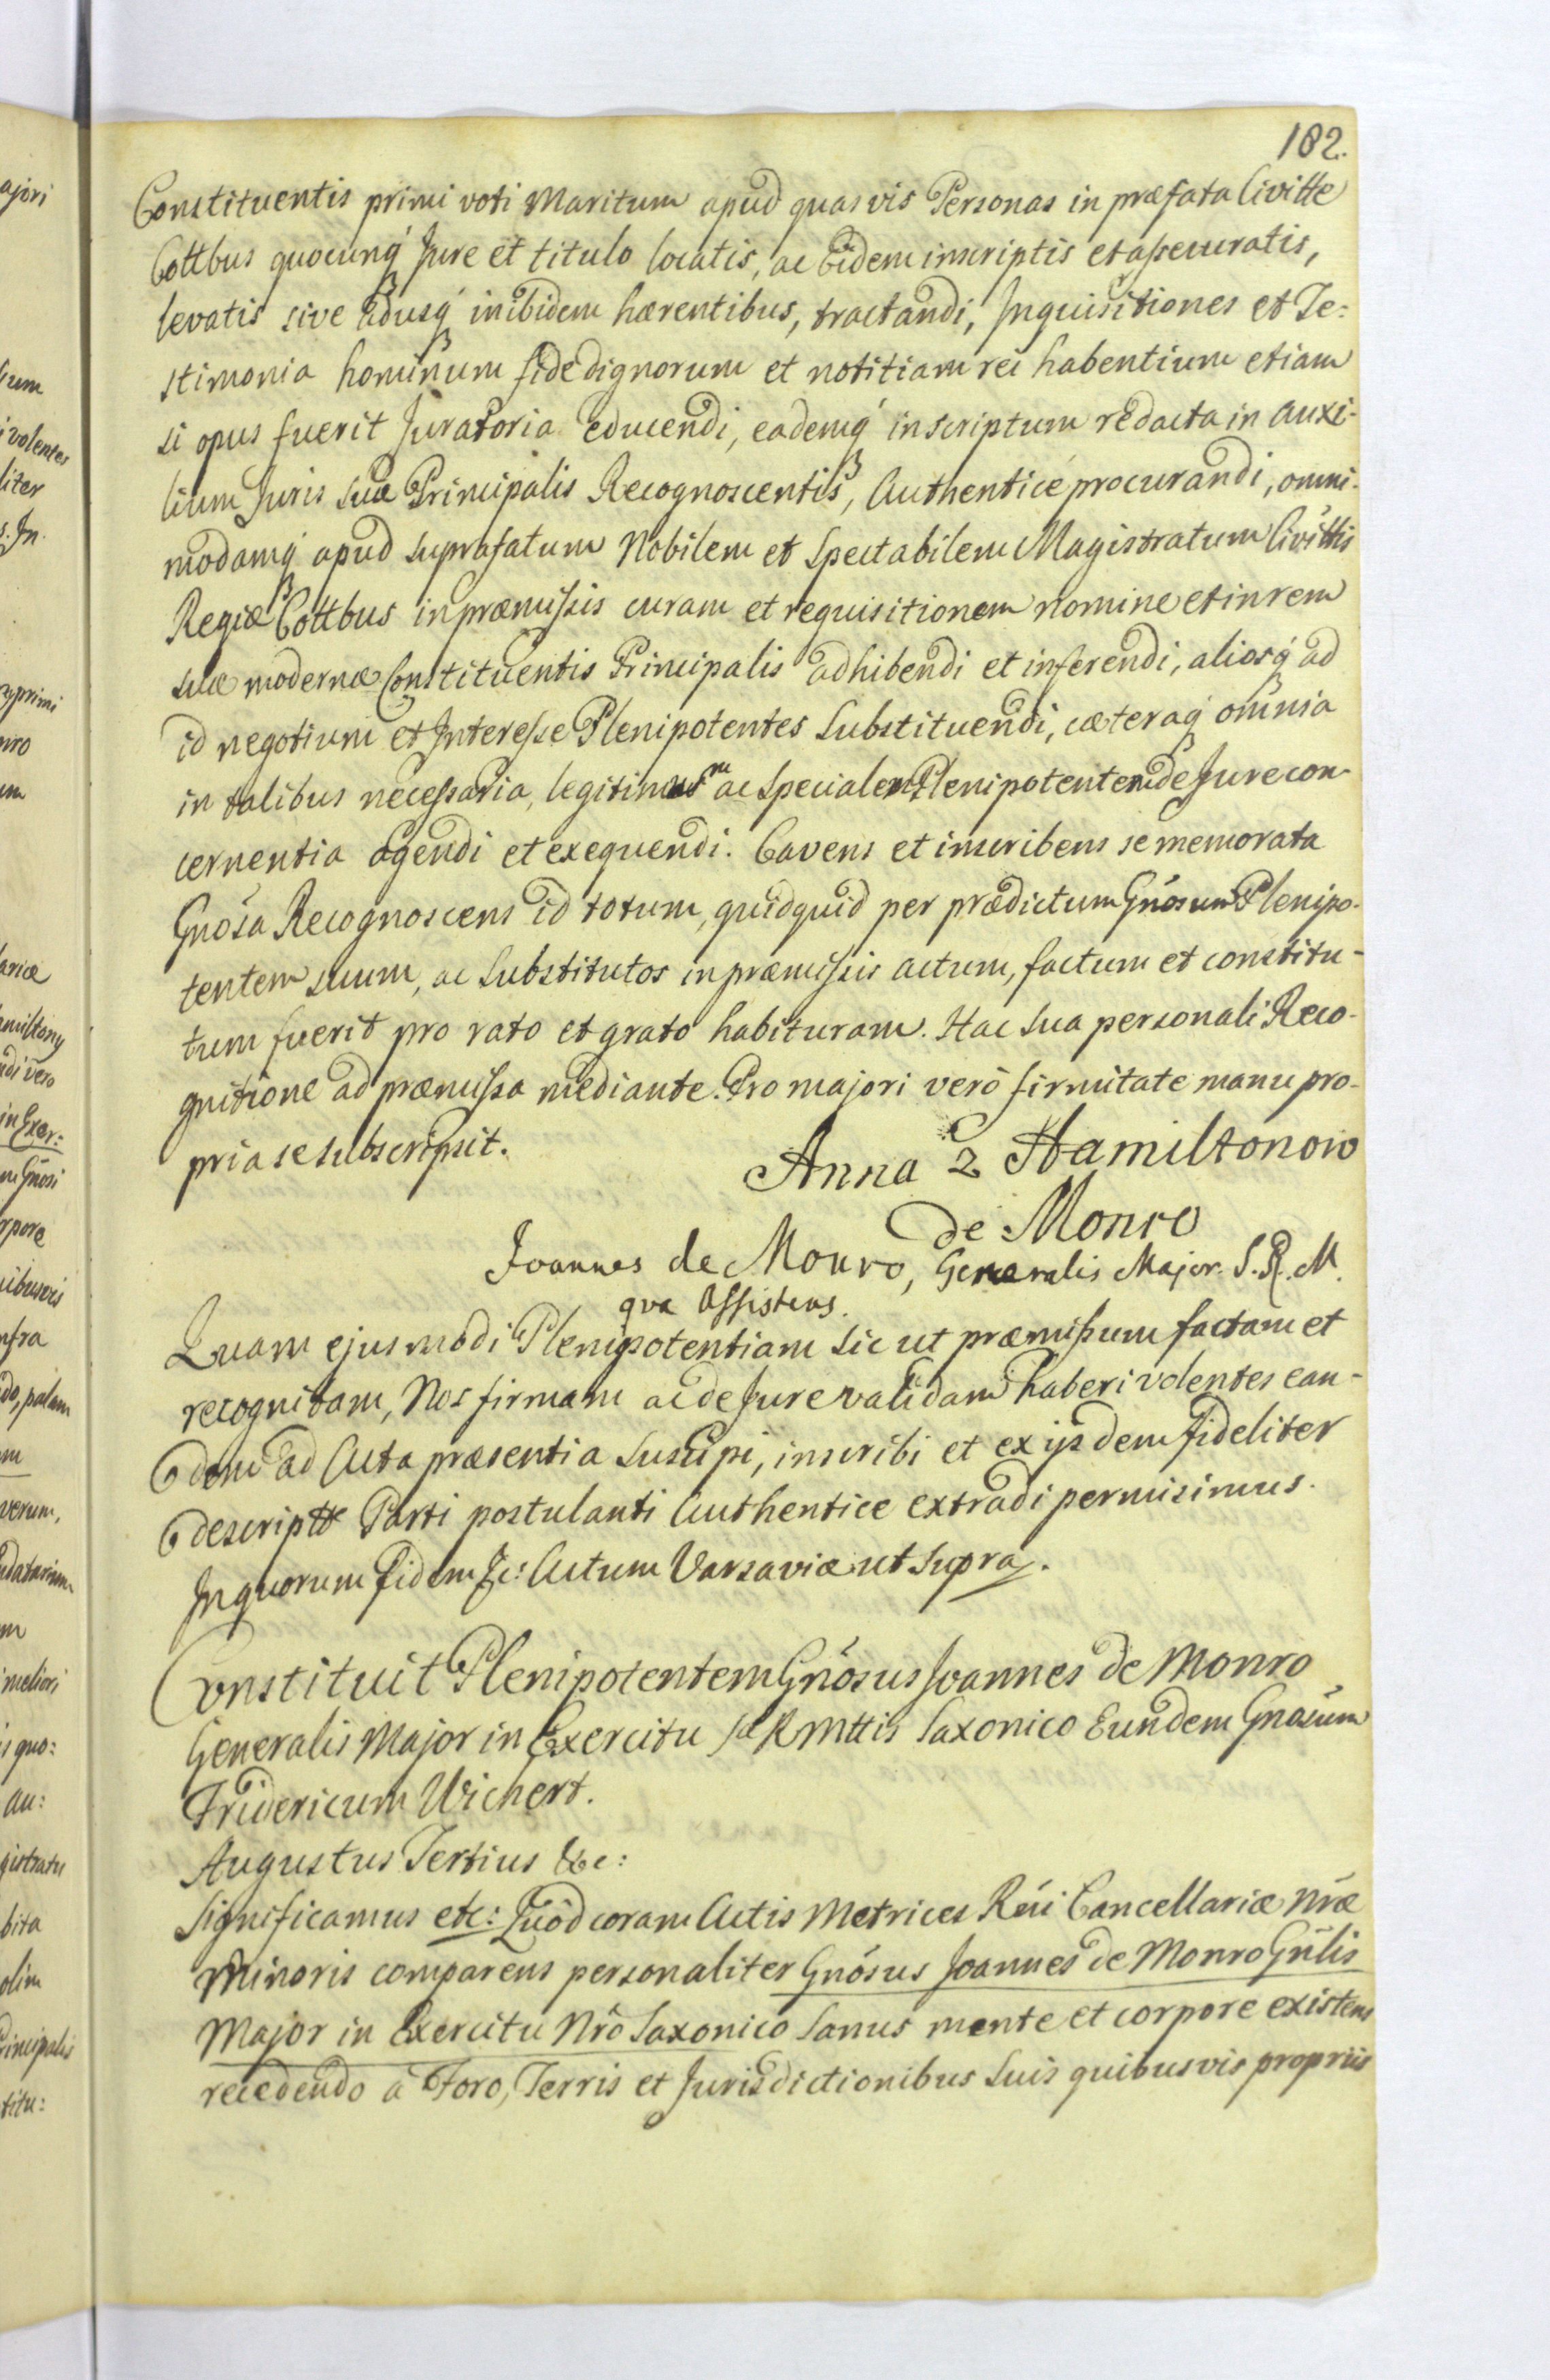 182.
Constituentis primi voti Maritum apud quasvis Personas in præfata Civitte
Cottbus quocunq́ Jure et titulo locatis, ac ibidem inscriptis et assecuratis,
levatis sive adusq́ inibidem hærentibus, tractandi, Inquisitiones et Te=
stimonia hominum fide dignorum et notitiam rei habentium etiam
si opus fuerit Juratoria educendi, eademq́ in scriptum redacta in auxi-
lium Juris suæ Principalis Recognoscentis, Authentice procurandi, omni-
modamq́ apud suprafatum Nobilem et Spectabilem Magistratum Civittis
Regiæ Cottbus in præmissis curam et requisitionem nomine et in rem
suæ modernæ Constituentis Principalis adhibendi et inferendi, aliosq́ ad
id negotium et Interesse Plenipotentes Substituendi, cæteraq́ omnia
in talibus necessaria, legitimum ac Specialem Plenipotentem de Jure con-
cernentia agendi et exequendi. Cavens et inscribens se memorata
Gnosa Recognoscens id totum, quidquid per prædictum Gnosum Plenipo-
tentem suum, ac Substitutos in præmissis actum, factum et constitu-
tum fuerit pro rato et grato habituram. Hac sua personali Reco-
gnitione ad præmissa mediante. Pro majori verò firmitate manu pro-
pria se subscripsit.
Anna z Hamiltonow
de Monro
Joannes de Monro, Generalis Major S. R. M.
qva Assistens.
Quam ejusmodi Plenipotentiam sic ut præmissum factam et
recognitam, Nos firmam ac de Jure validam haberi volentes ean-
dem ad Acta præsentia suscipi, inscribi et ex ijsdem fideliter
descriptæ Parti postulanti Authentice extradi permisimus.
In quorum fidem &c: Actum Varsaviæ ut supra.
Constituit Plenipotentem Gnosus Joannes de Monro
Generalis Major in Exercitu Sæ R Mttis Saxonico Eundem Gnosum
Fridericum Wichert.
Augustus Tertius &c:
Significamus etc: Quod coram Actis Metrices Rni Cancellariæ Nræ
Minoris comparens personaliter Gnosus Joannes de Monro Gnlis
Major in Exercitu Nro Saxonico sanus mente et corpore existens
recedendo à Foro, Terris et Jurisdictionibus suis quibusvis propriis